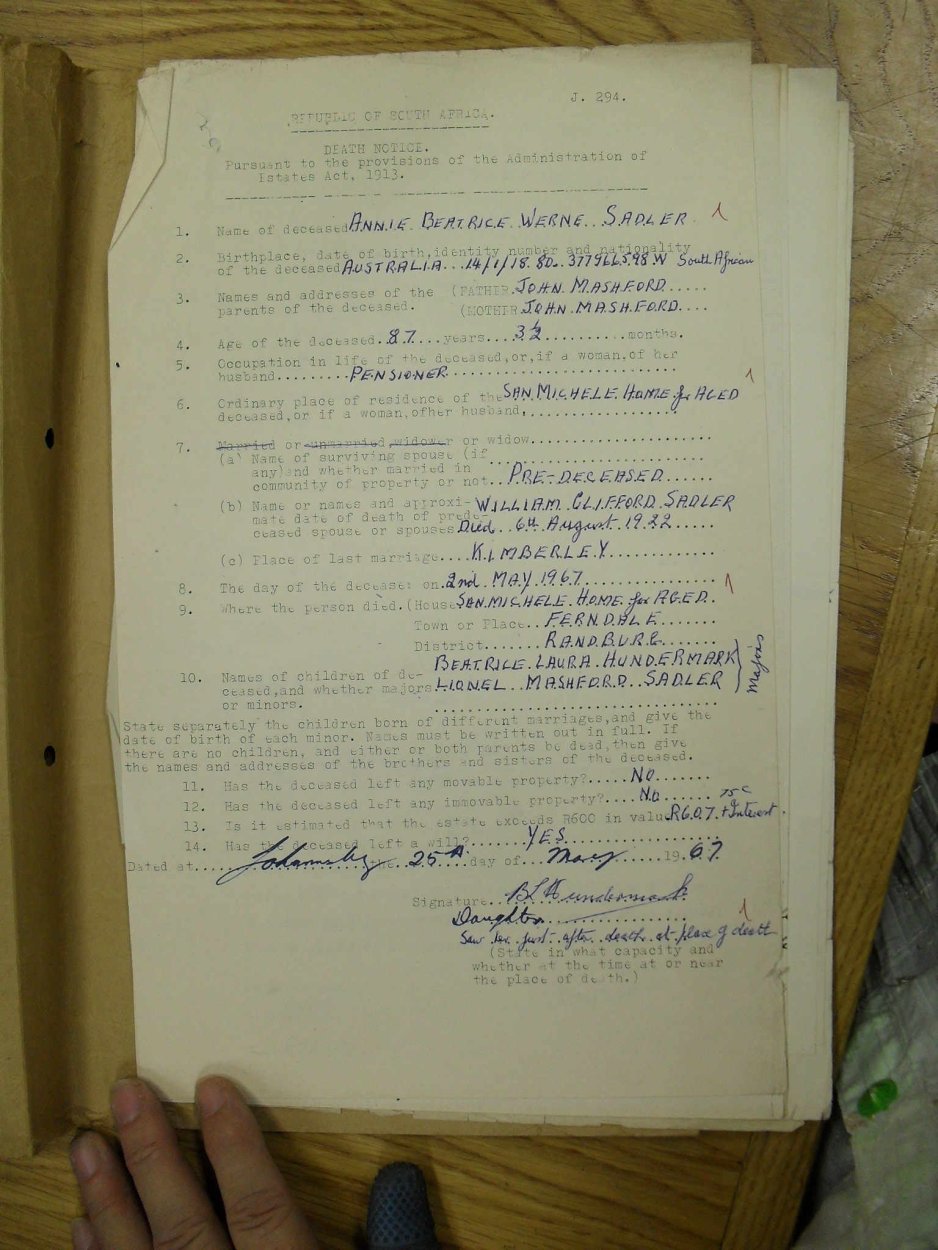 J. 294.
REPUBLIC OF SOUTH AFRICA.
DEATH NOTICE.
Pursuant to the provisions of the Administration of
Estates Act, 1913.
1. Name of deceased ANNIE BEATRICE WERNE SADLER
2. Birthplace, date of birth, identity number and nationality
of the deceased AUSTRALIA...14/1/18.80..377966598 W South African
3. Names and addresses of the (FATHER. JOHN MASHFORD......
parents of the deceased. (MOTHER JOHN MASHFORD....
4. Age of the deceased..87....years....3½..........months.
5. Occupation in life of the deceased,or,if a woman,of her
husband.........PENSIONER.............................
6. Ordinary place of residence of the SAN MICHELE HOME for AGED
deceased,or if a woman,ofher husband,...................
7. Married or unmarried,widower or widow.......................
(a) Name of surviving spouse (if
any)and whether married in
community of property or not..PRE-DECEASED.......
(b) Name or names and approxi- WILLIAM CLIFFORD SADLER
mate date of death of prede-
ceased spouse or spouses Died..6th August 1922.....
(c) Place of last marriage....KIMBERLEY.............
8. The day of the decease: on.2nd MAY 1967...............
9. Where the person died.(House SAN MICHELE HOME for AGED..
Town or Place..FERNDALE.......
District.......RANDBURG.......
BEATRICE LAURA HUNDERMARK
10. Names of children of de-
ceased,and whether majors LIONEL MASHFORD SADLER
Majors
or minors.
State separately the children born of different marriages,and give the
date of birth of each minor. Names must be written out in full. If
there are no children, and either or both parents be dead,then give
the names and addresses of the brothers and sisters of the deceased.
11. Has the deceased left any movable property?.....No........
12. Has the deceased left any immovable property?....No.......
75c
13. Is it estimated that the estate exceeds R600 in value R607 + Interest
14. Has the deceased left a will?........YES................
Dated at.....Johannesburg the..25th.day of...May......19.67.
Signature..BL Hundermark
Daughter...................
Saw her just after death at place of death
(State in what capacity and
whether at the time at or near
the place of death.)